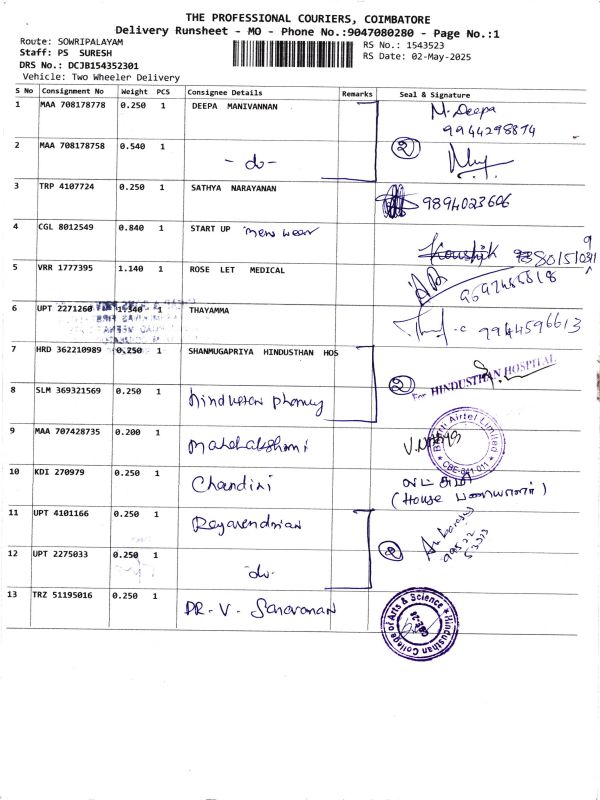 THE PROFESSIONAL COURIERS, COIMBATORE
Delivery Runsheet - MO - Phone No.:9047080280 - Page No.:1
Route: SOWRIPALAYAM
Staff: PS SURESH
DRS No.: DCJB154352301
Vehicle: Two Wheeler Delivery
RS No.: 1543523
RS Date: 02-May-2025
S No Consignment No Weight PCS Consignee Details Remarks Seal & Signature
1 MAA 708178778 0.250 1 DEEPA MANIVANNAN M. Deepa
9944298874
2 MAA 708178758 0.540 1 - do - 2
3 TRP 4107724 0.250 1 SATHYA NARAYANAN 9894023606
4 CGL 8012549 0.840 1 START UP mens wear Koushik
5 VRR 1777395 1.140 1 ROSE LET MEDICAL
6 UPT 2271260 1.340 1 THAYAMMA 9944596613
7 HRD 362210989 0.250 1 SHANMUGAPRIYA HINDUSTHAN HOS
2 For HINDUSTHAN HOSPITAL
8 SLM 369321569 0.250 1 hindustan pharmacy
9 MAA 707428735 0.200 1 mahalakshmi
Bharti Airtel Limited
CBE-641 011
10 KDI 270979 0.250 1 Chandini
(House
11 UPT 4101166 0.250 1
12 UPT 2275033 0.250 1 -do- 2
13 TRZ 51195016 0.250 1 DR. V. Saravanan
Hindusthan College of Arts & Science